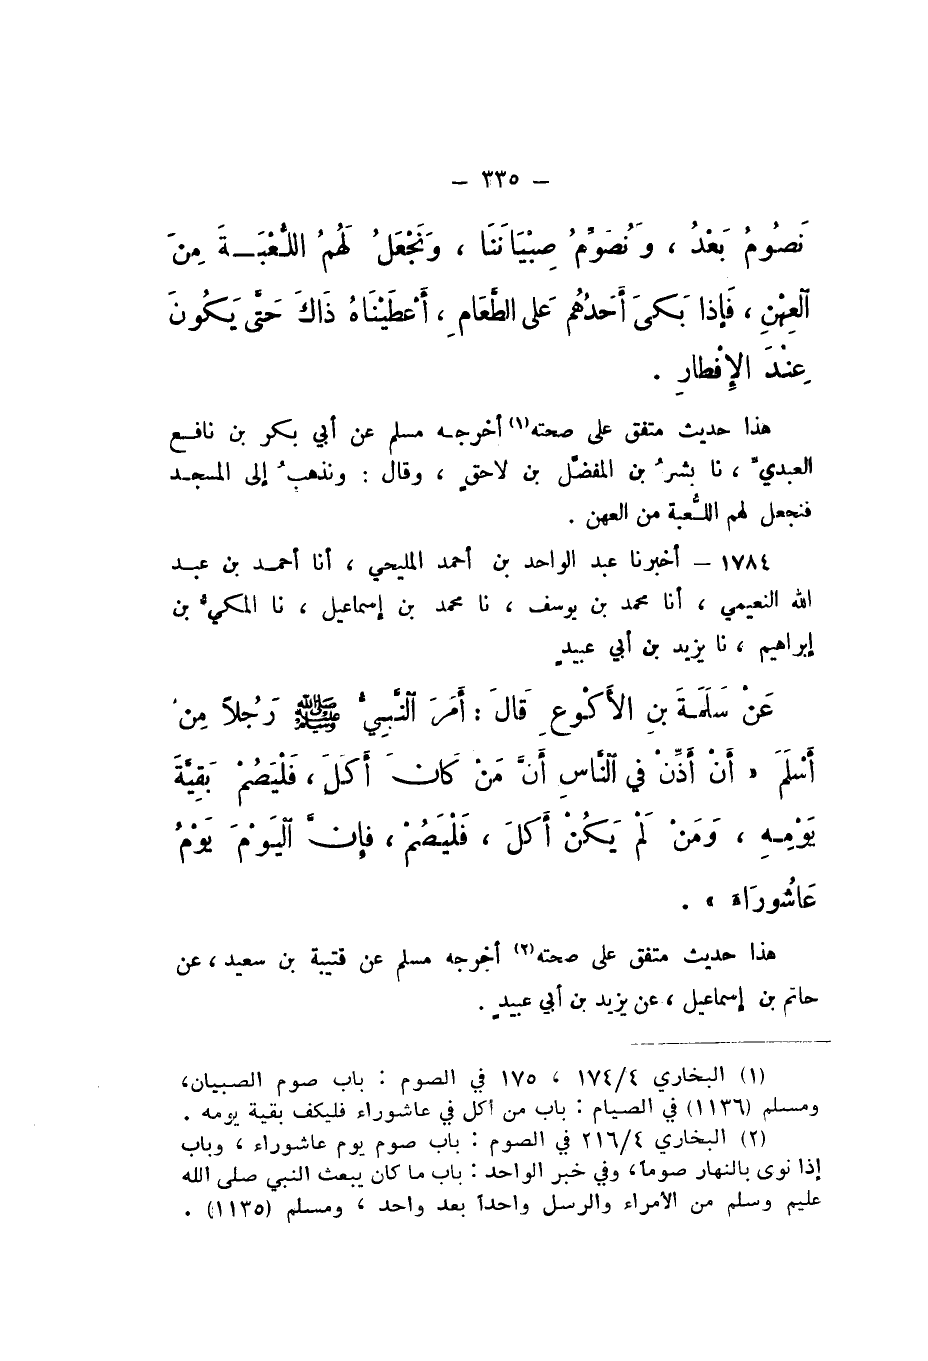 – ٣٣٥ –
نَصُومُ بَعْدُ ، وَنُصَوِّمُ صِبْيَانَنَا ، وَنَجْعَلُ لَهُمُ اللُّعْبَـةَ مِنَ
اَلعِهْنِ ، فَإِذا بَكَى أَحَدُهُم عَلى الطَّعَامِ ، أَعطَيْنَاهُ ذَاكَ حَتَّى يَكُونَ
عِنْدَ الإِفْطارِ .
هذا حديث متفق على صحته(١) أخرجه مسلم عن أبي بكر بن نافع
العبديِّ ، نا بشرُ بن المفضَّل بن لاحقٍ ، وقال : ونذهبُ إلى المسجد
فنجعل لهم اللُّعبة من العهن .
١٧٨٤ – أخبرنا عبد الواحد بن أحمد المليحي ، أنا أحمد بن عبد
الله النعيمي ، أنا محمد بن يوسف ، نا محمد بن إسماعيل ، نا المكيُّ بن
إبراهيم ، نا يزيد بن أبي عبيدٍ
عَنْ سَلَمَةَ بنِ الأَكْوعِ قَالَ : أَمَرَ اَلنَّبِيُّ ﷺ رَجُلاً مِنْ
أَسْلَمَ « أَنْ أَذِّنْ في اَلنَّاسِ أَنَّ مَنْ كَانَ أَكَلَ ، فَلْيَصُمْ بَقِيَّةَ
يَوْمِهِ ، وَمَنْ لَمْ يَكُنْ أَكَلَ ، فَلْيَصُمْ ، فإِنَّ اَليَوْمَ يَوْمُ
عَاشُورَاءَ » .
هذا حديث متفق على صحته(٢) أخرجه مسلم عن قتيبة بن سعيد ، عن
حاتم بن إسماعيل ، عن يزيد بن أبي عبيدٍ .
(١) البخاري ١٧٤/٤ ، ١٧٥ في الصوم : باب صوم الصبيان،
ومسلم (١١٣٦) في الصيام : باب من أكل في عاشوراء فليكف بقية يومه .
(٢) البخاري ٢١٦/٤ في الصوم : باب صوم يوم عاشوراء ، وباب
إذا نوى بالنهار صوماً، وفي خبر الواحد : باب ما كان يبعث النبي صلى الله
عليم وسلم من الأمراء والرسل واحداً بعد واحد ، ومسلم (١١٣٥) .